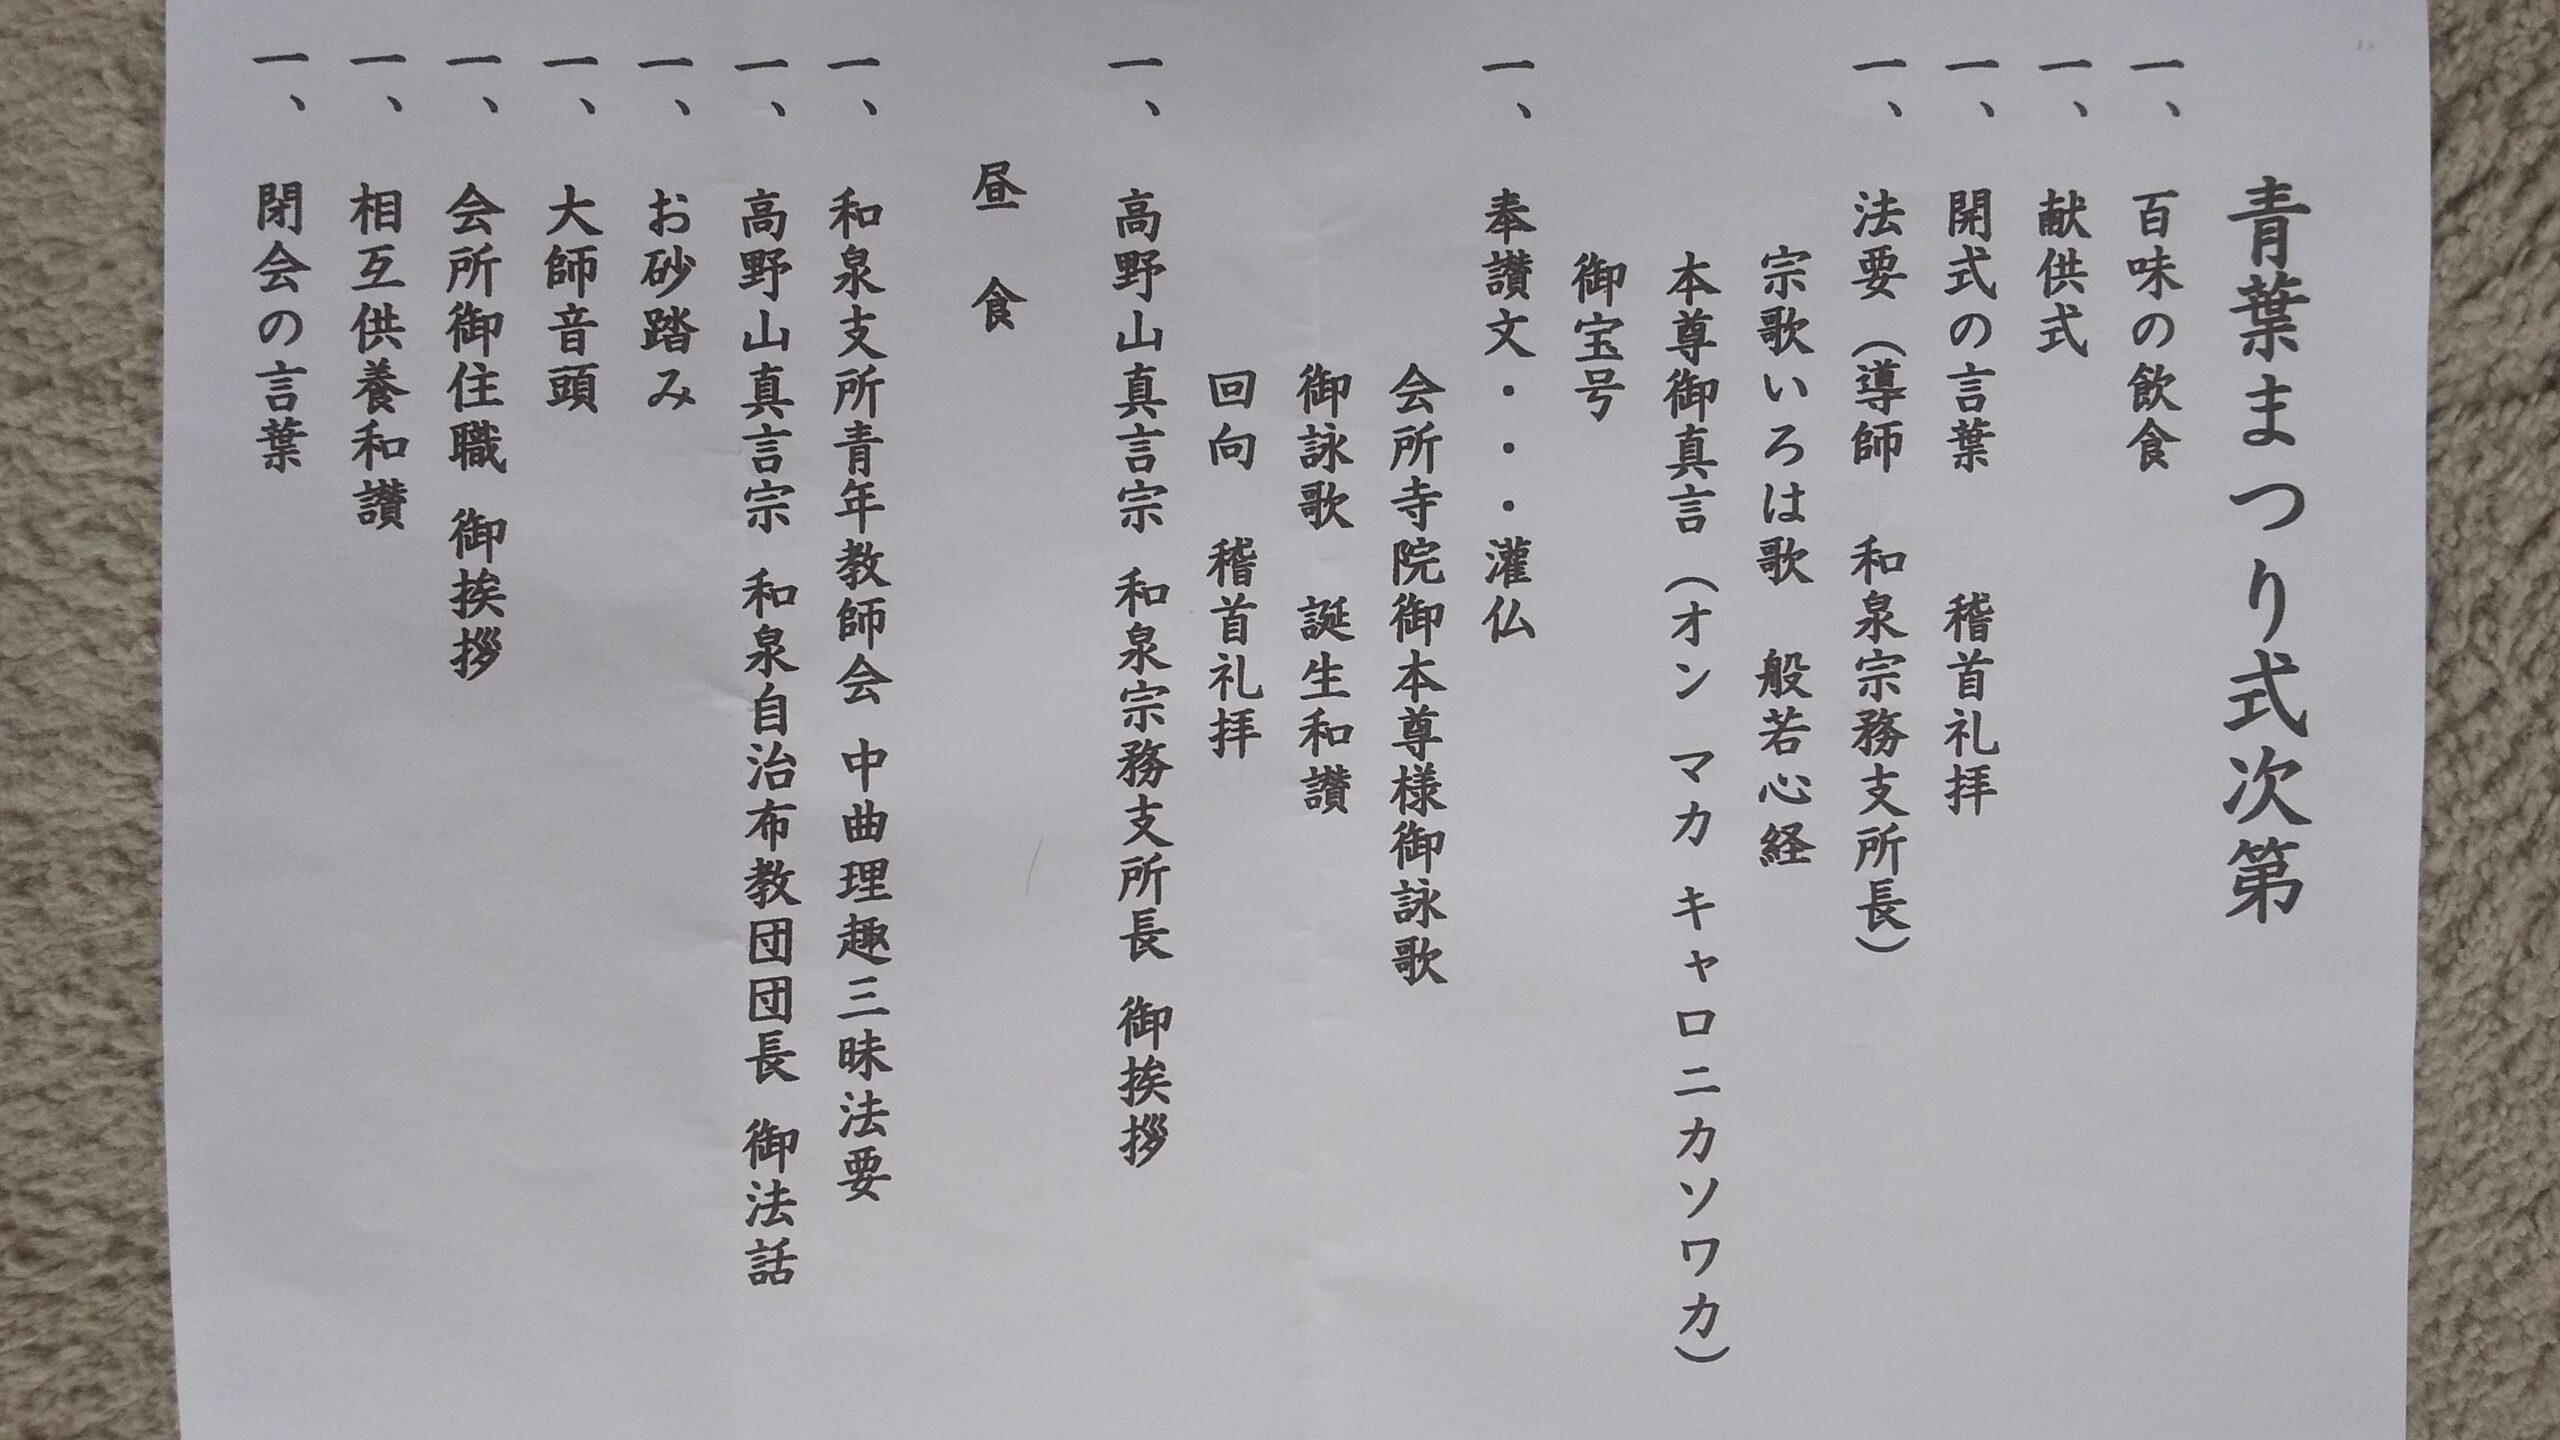 青葉まつり式次第
一、百味の飲食
一、献供式
一、開式の言葉　稽首礼拝
一、法要（導師　和泉宗務支所長）
宗歌いろは歌　般若心経
本尊御真言（オン マカ キャロニカソワカ）
御宝号
一、奉讃文・・・灌仏
会所寺院御本尊様御詠歌
御詠歌　誕生和讃
回向　稽首礼拝
一、高野山真言宗 和泉宗務支所長 御挨拶
昼　食
一、和泉支所青年教師会 中曲理趣三昧法要
一、高野山真言宗 和泉自治布教団団長 御法話
一、お砂踏み
一、大師音頭
一、会所御住職 御挨拶
一、相互供養和讃
一、閉会の言葉